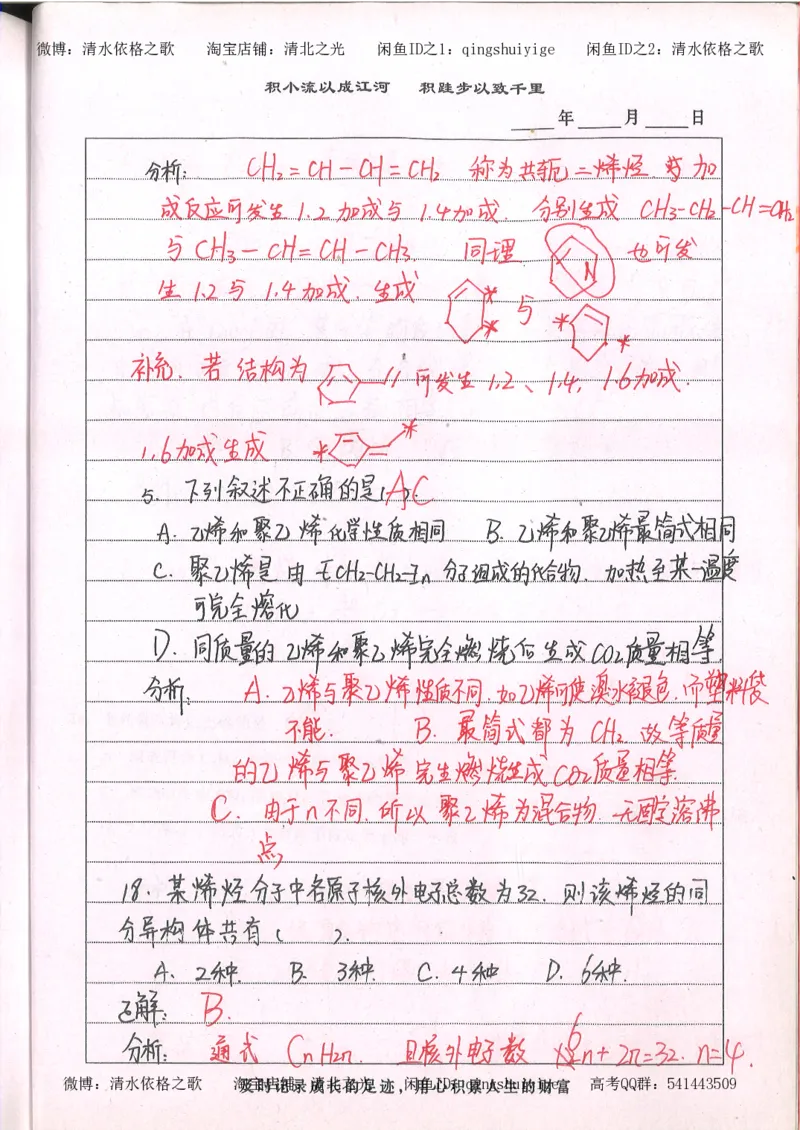 微博：清水依格之歌 淘宝店铺：清北之光 闲鱼ID之1：qingshuiyige 闲鱼ID之2：清水依格之歌
积小流以成江河 积跬步以致千里
年 月 日
分析： CH₂=CH-CH=CH₂ 称为共轭二烯烃.与加
成反应可发生1.2加成与1.4加成. 分别生成 CH3-CH2-CH=CH2
与 CH3-CH=CH-CH3. 同理 也可发
生1.2与1.4加成.生成 * * 与 * *
补充. 若结构为 可发生1.2、1.4、1.6加成.
1.6加成生成 * *
5. 下列叙述不正确的是( AC ).
A. 乙烯和聚乙烯化学性质相同 B. 乙烯和聚乙烯最简式相同
C. 聚乙烯是由-[CH2-CH2-]n 分子组成的化合物. 加热至某一温度
可完全熔化
D. 同质量的乙烯和聚乙烯完全燃烧后生成CO2质量相等.
分析. A. 乙烯与聚乙烯性质不同.如乙烯可使溴水褪色.而塑料袋
不能. B. 最简式都为CH2 故等质量
的乙烯与聚乙烯完全燃烧生成CO2质量相等.
C. 由于n不同.所以聚乙烯为混合物.无固定溶沸
点
18. 某烯烃分子中各原子核外电子总数为32. 则该烯烃的同
分异构体共有( ).
A. 2种. B. 3种. C. 4种 D. 6种.
正解： B.
分析： 通式 CnH2n. 且核外电子数 6n+2n=32. n=4.
及时记录成长的足迹，用心积累人生的财富
微博：清水依格之歌 淘宝店铺：清北之光 闲鱼ID：qingshuiyige 高考QQ群：541443509